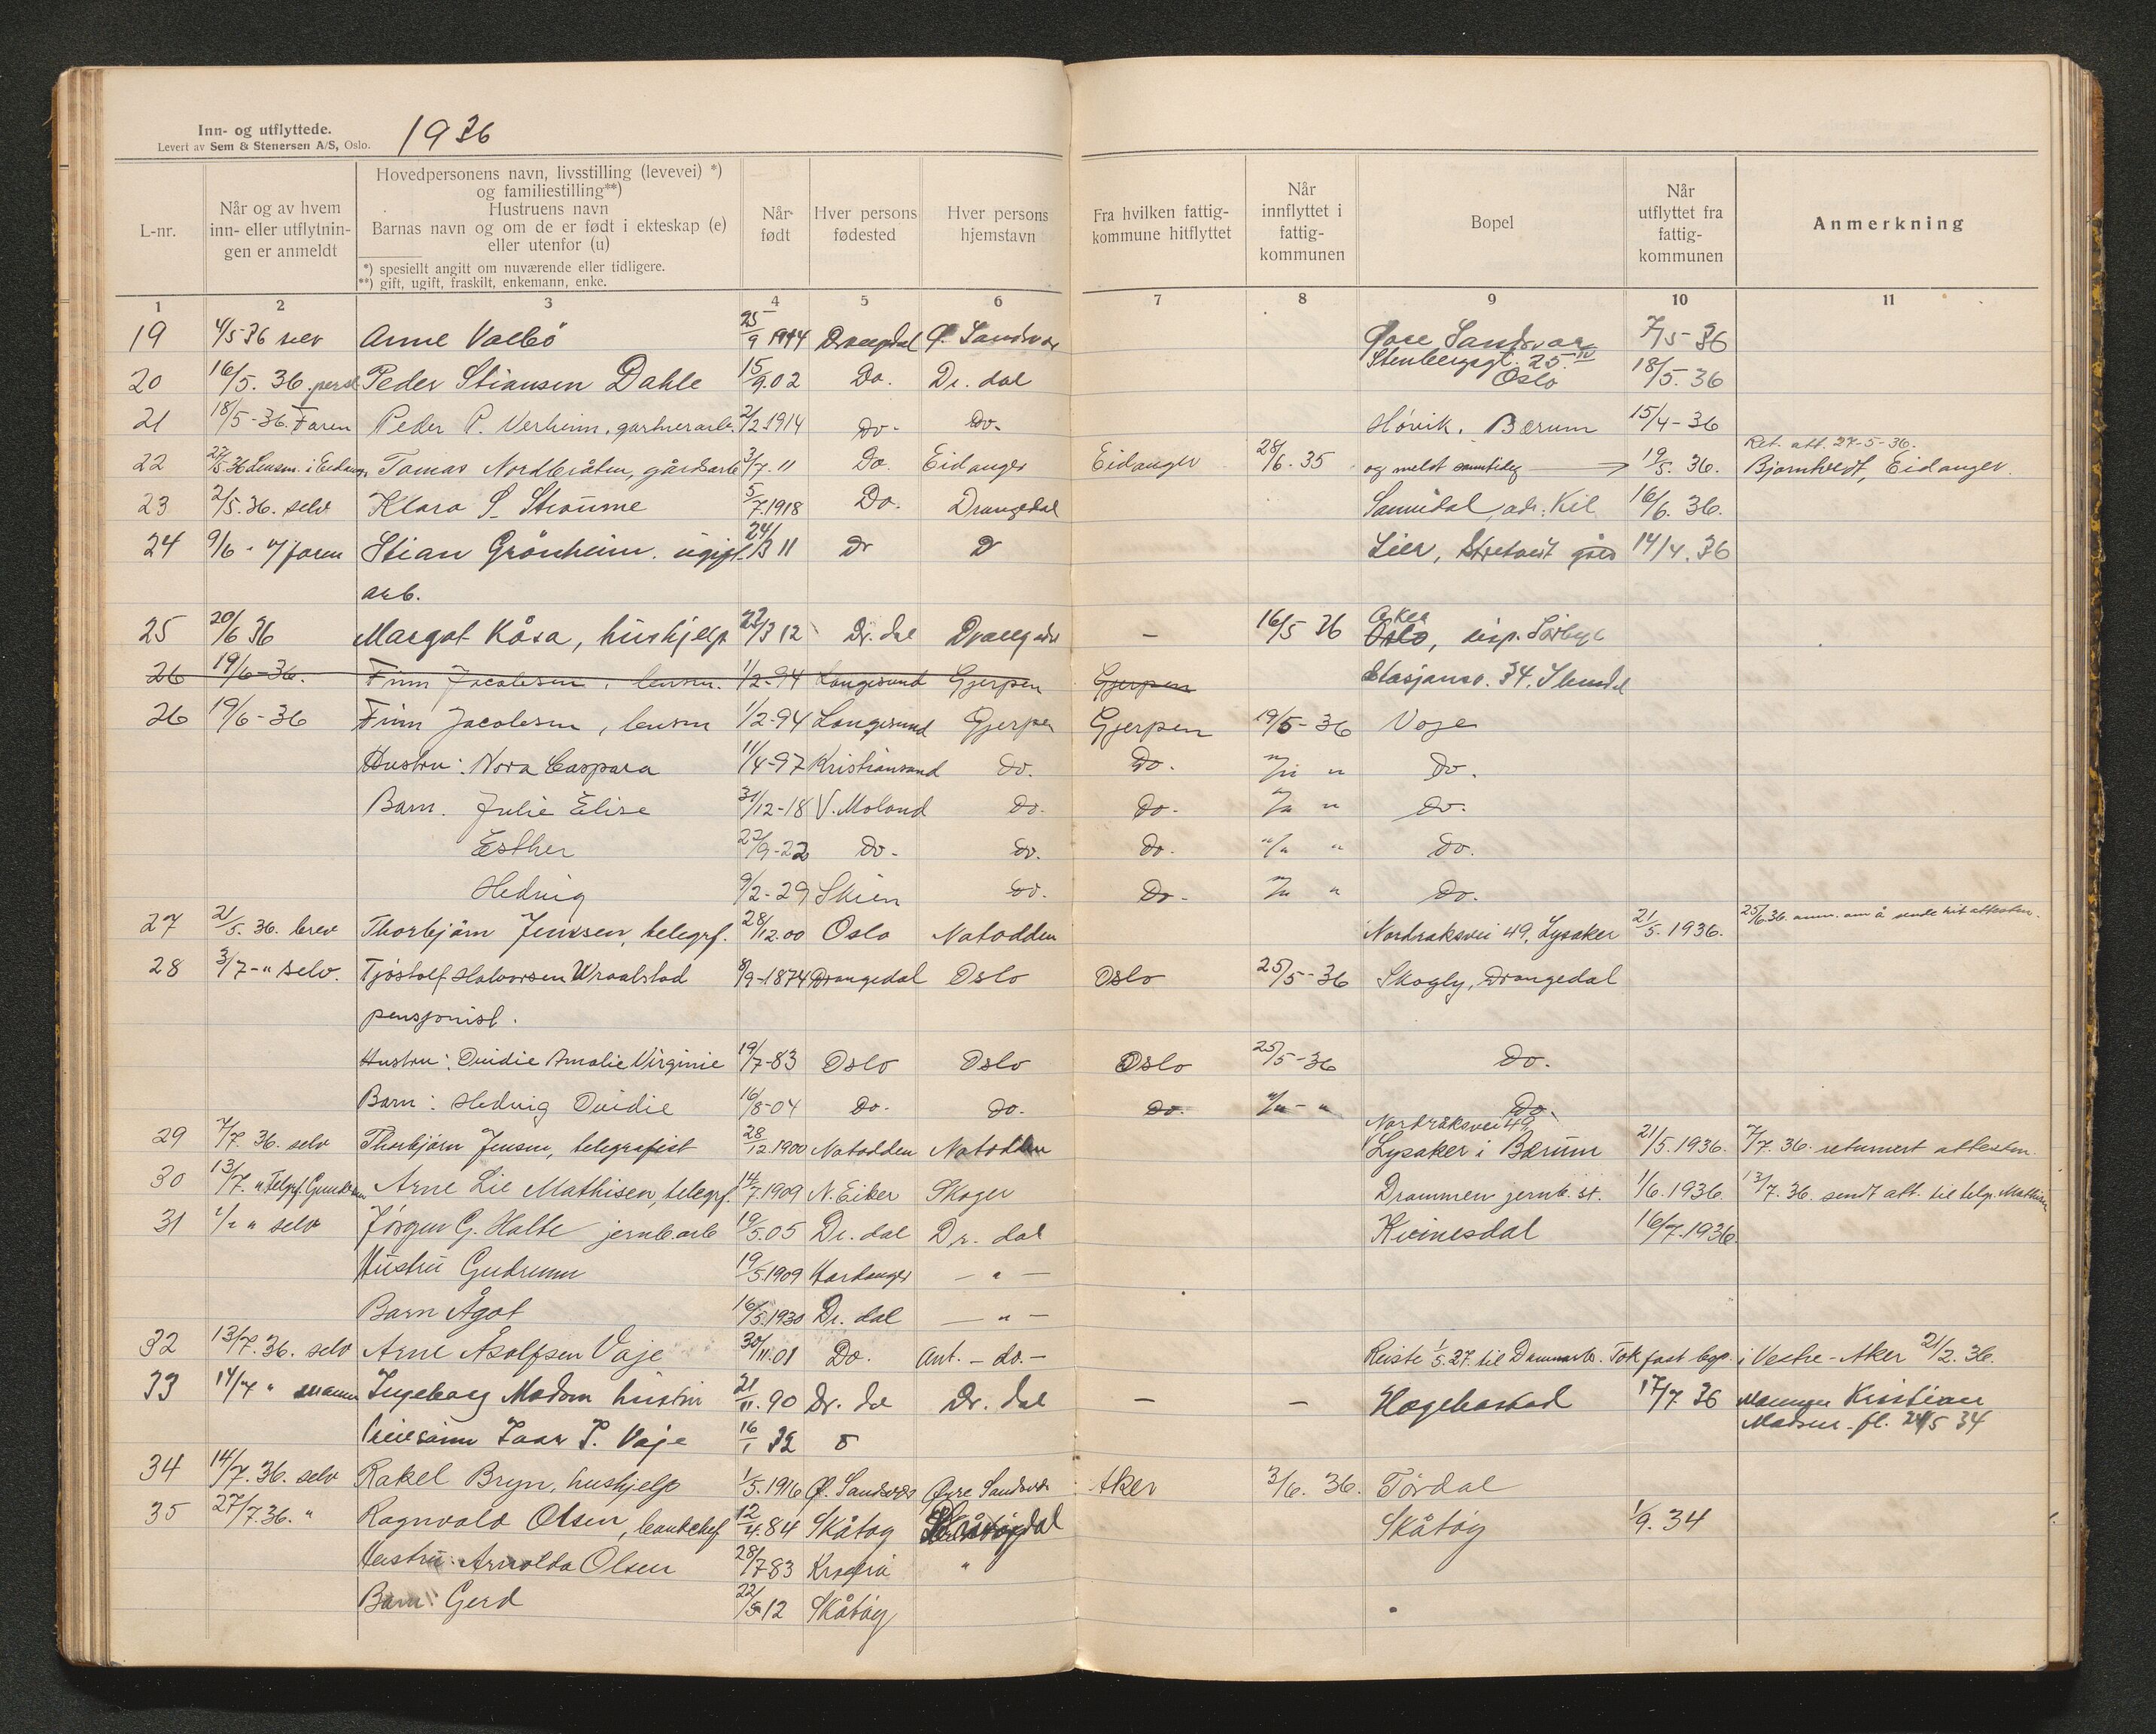 Inn- og utflyttede. 1936
Levert av Sem & Stenersen A/S, Oslo.
L-nr.
Når og av hvem inn- eller utflytnin- gen er anmeldt
Hovedpersonens navn, livsstilling (levevei) *)
og familiestilling**)
Hustruens navn
Barnas navn og om de er født i ekteskap (e)
eller utenfor (u)
*) spesiellt angitt om nuværende eller tidligere.
**) gift, ugift, fraskilt, enkemann, enke.
Når født
Hver persons fødested
Hver persons hjemstavn
Fra hvilken fattig- kommune hitflyttet
Når innflyttet i fattig- kommunen
Bopel
Når utflyttet fra fattig- kommunen
Anmerkning
1 2 3 4 5 6 7 8 9 10 11
19 4/5 36 selv Anne Valbö 25/9 1914 Drangedal Ø. Sandsvær 7/5-36
20 16/5. 36. Peder Stiansen Dahle 15/9.02 Do. Dr. dal Stenbergsgt. 25 IV Oslo 18/5. 36
21 18/5-36. Faren Peder P. Verheim, gartnerarb. 2/2 1914 Do. Do. Høvik. Bærum 15/4-36
Ret. att 27-5-36.
22 Lensm. i Eidanger Tomas Nordbråten, gårdsarb 3/7. 11 Do. Eidanger Eidanger 28/6. 35 og meldt samtidig 19/5. 36. Bjørntvedt, Eidanger.
23 2/5. 36. selv Klara S. Straume 5/7.1918 Do. Drangedal Sannidal, adr. Kil 16/6. 36.
24 9/6 - " faren Stian Grönheim. ugift. 24/3 11 Dr D Lier, gård 14/4. 36
arb.
25 20/6 36 Margot Kåsa, hushjelp 23/3 12 Dr. dal Drangedal — 16/5 36 Aker Oslo,
26 19/6-36. Finn Jacobsen, lensm. 1/2-94 Langesund Gjerpen Gjerpen Stasjonsv. 34.
26 19/6-36 Finn Jacobsen, lensm 1/2-94 Langesund Gjerpen Gjerpen 19/5-36 Voje
Hustru: Nora Caspara 11/4-97 Kristiansand do. Do. "/" " Do.
Barn. Julie Elise 31/12-18 V. Moland do. Do. "/" " Do.
Esther 22/9-22 Do. do. Do. "/" " Do.
Hedvig 9/2-29 Skien do. Do. "/" " Do.
27 21/5. 36. brev Thorbjörn Jenssen, telegrf. 28/12.00 Oslo Notodden Nordraksvei 49, Lysaker 21/5. 1936. 25/6.36. anm. om å sende hit attesten.
28 3/7-" selv. Tjöstolf Halvorsen Wraalstad 8/9-1874 Drangedal Oslo Oslo 25/5-36 Skogly, Drangedal
pensjonist.
Hustru: Ovidie Amalie Virginie 19/7-83 Oslo Oslo Oslo 25/5-36 Do.
Barn: Hedvig Ovidie 16/8-04 Do. do. do. "/"-" Do.
29 7/7. 36. selv Thorbjörn Jensen, telegrafist 28/12.1900 Notodden Notodden Nordråksvei 49, Lysaker i Bærum 21/5.1936. 7/7. 36. returnert attesten.
30 13/7. " Telgrf. Gundersen Arne Lie Mathisen, telegrf. 14/7.1909 N. Eiker Skoger Drammen jernb. st. 1/6.1936. 13/7. 36. sendt att. til telgr. Mathisen
31 "/" " selv Jörgen G. Holte jernb.arb 19/5.05 Dr. dal Dr. dal Kvinesdal 16/7.1936.
Hustru Gudrunn 19/5.1909 Hardanger — " —
Barn Ågot 16/5.1930 Dr. dal — " —
32 13/7. 36. selv Arne Åsolfsen Voje 30/11.01 Do. Ant. - do. - Reiste 1/5.27. til Danmark. Tok fast bop. i Vestre-Aker 21/2. 36.
33 14/7 " mannen Ingeborg Madsen hustru 21/11. 90 Dr. dal Dr. dal — — Hægebostad 17/7. 36 Mannen Kristian
P. Voje 16/1 32 Madsen fl. 24/5 34
34 14/7. 36. selv Rakel Bryn, hushjelp 1/5.1916 Ø. Sandsvær Øvre Sandsvær Aker 3/6. 36. Tördal
35 27/7.36. " Ragnvald Olsen, banksjef 12/4.84 Skåtøy Drangedal Skåtøy 1/9. 34
Hustru: Arnolda Olsen 28/7 83 Kragerø "
Barn: Gerd 22/5-12 Skåtøy